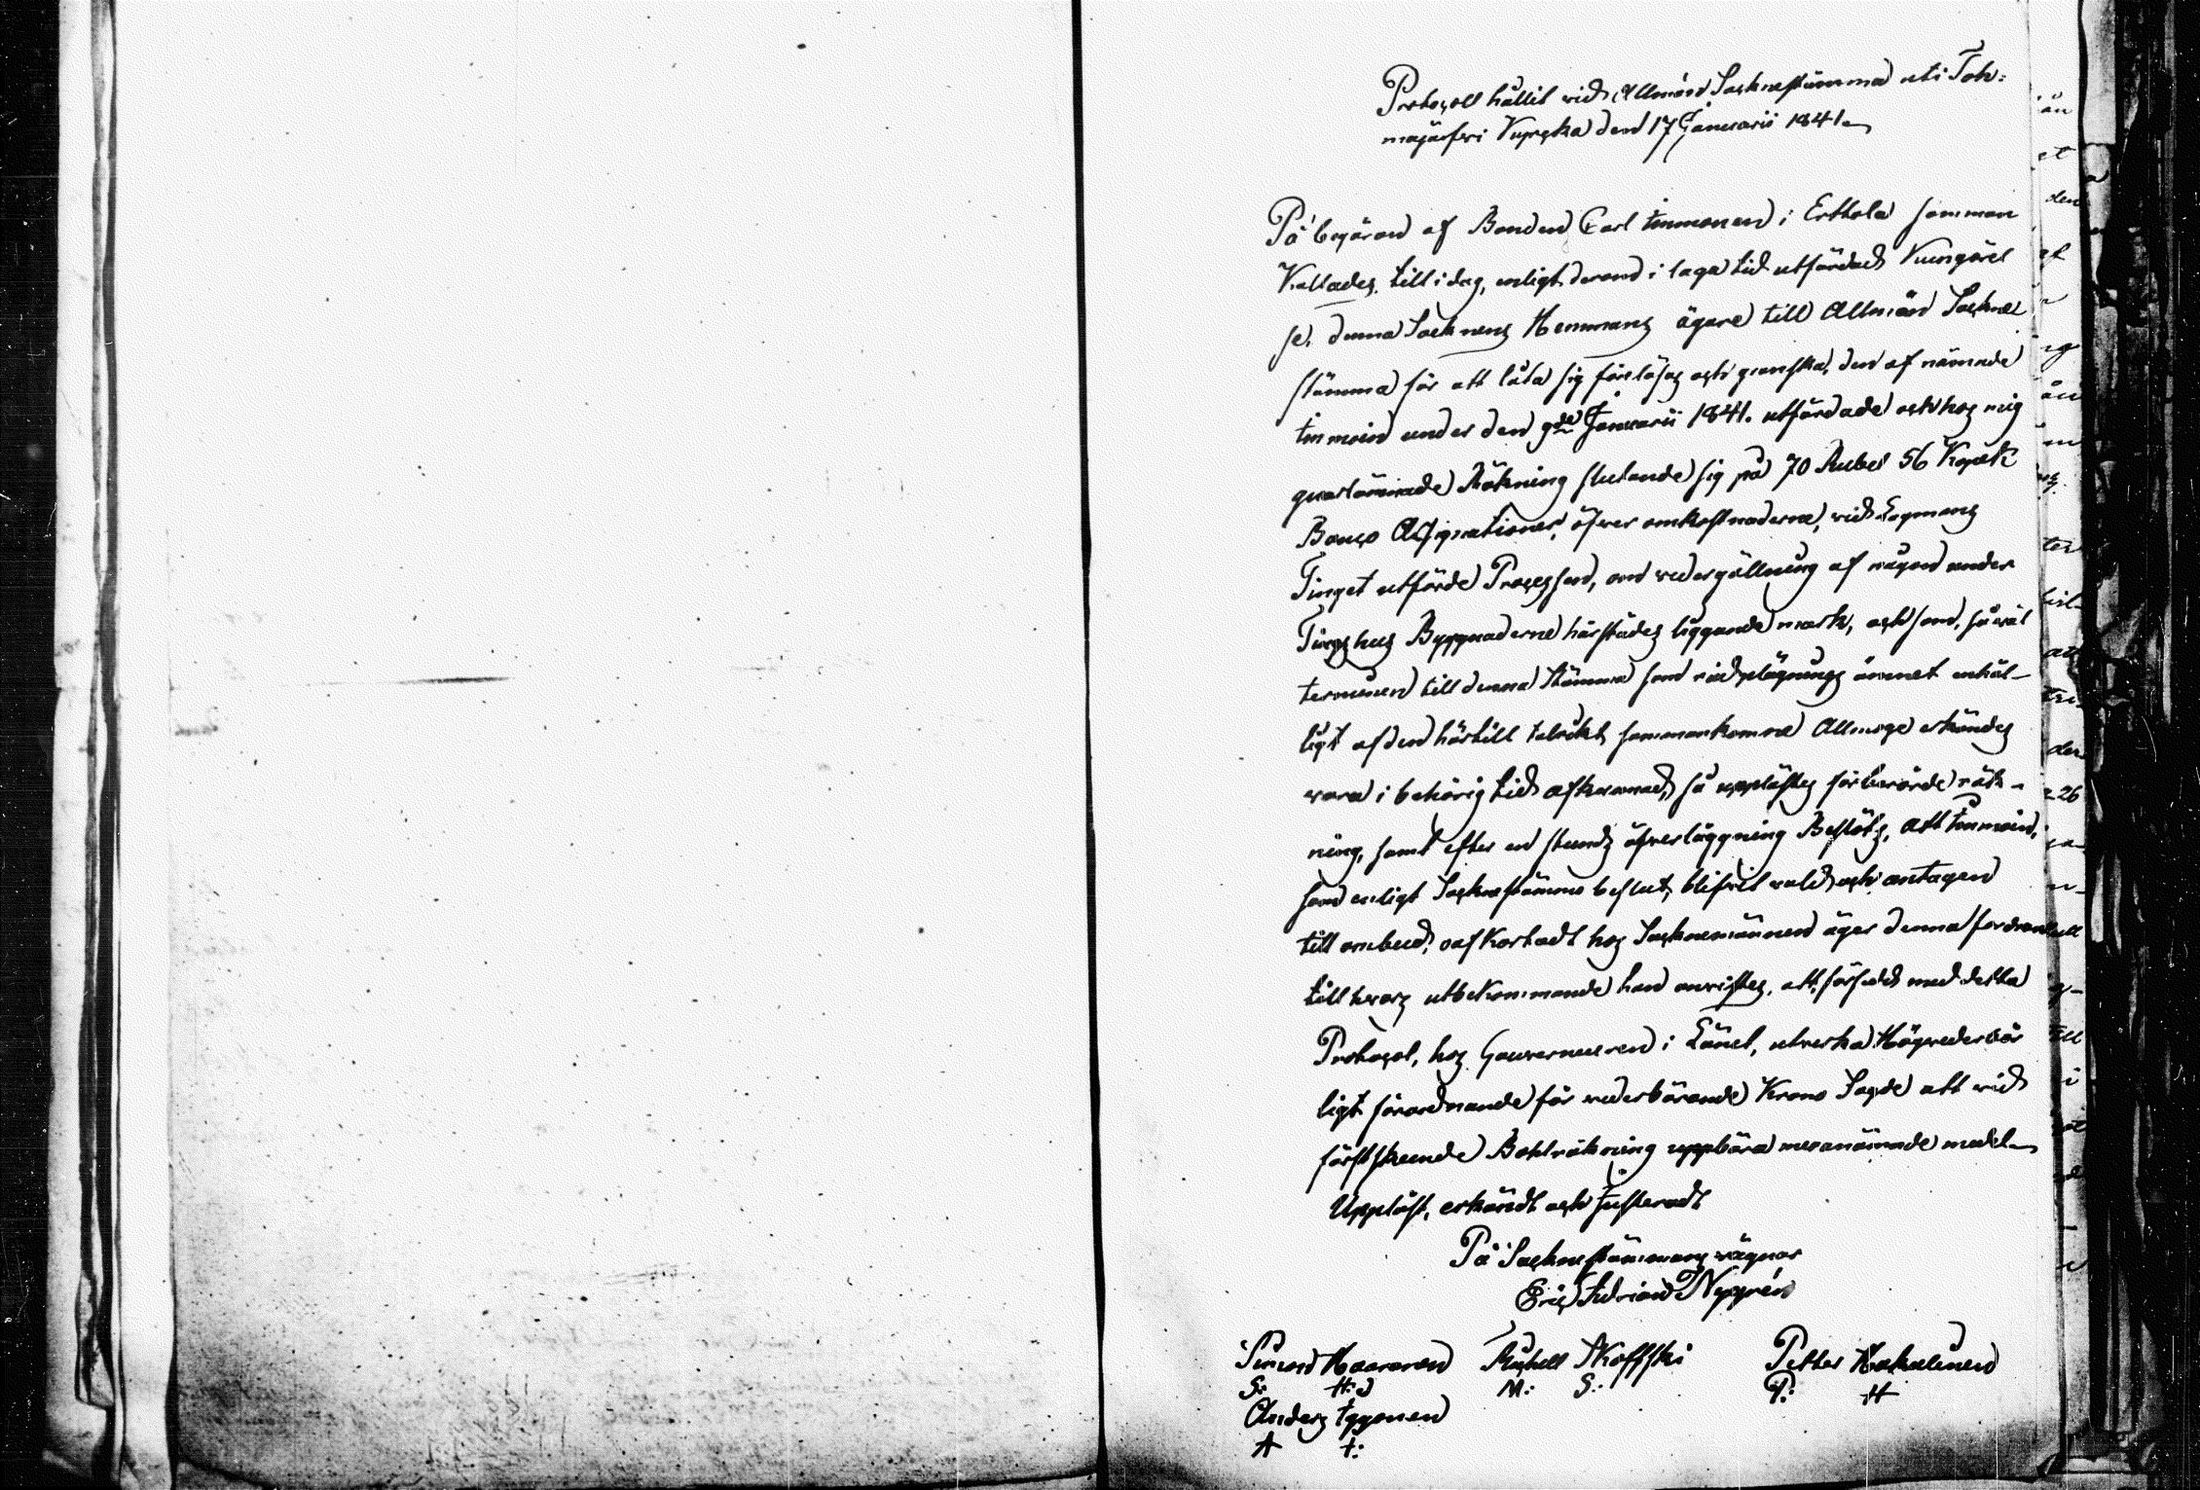 Protocoll hållit vid Allmän Socknestämma uti Toh=
majärfvi Kyrcka den 17 Januarii 1841.
På begäran af Bonden Carl Immonen i Erkkola samman
Kallades till i dag, enligt derom i laga tid utfärdad Kungörel
se, denna Socknens Hemmans ägare till Allmän Sockne
stämma för att låta sig föreläsas och granska, den af nämnde
Immoin under den 9de Januarii 1841. utfärdade och hos mig
qvarlämnade Räkning slutande sig på 70 Rubel 56 Kopek
Banco Assignationer, öfver omkostnaderne, vid Lagmans
Tinget utförde Processen, om vedergällning af någon under
Tingshus Byggnaderne härstädes liggande mark, och som, så väl
terminen till denna Stämma som rådplägnings ämnet enhäl-
ligt af den härtill talrikt sammankomne Allmoge erkändes
vara i behörig tid afkunnad, så upplästes förberörde räk-
ning, samt efter en stunds öfverläggning Beslöts, att Immoin,
som enligt Socknestämmo beslut, blifvit vald och antagen
till ombud, oafkortadt hos Socknemännen äger denna fordran
till hvars utbekommande han anvistes, att försedd med detta
Protocol, hos Gouverneuren i Länet, utverka Högvederbör
ligt förordnande för vederbörande Krono Fogde att vid
förstskeende Bohlräkning uppbära meranämnde medel
Uppläst, erkändt och Justeradt
På Socknestämmans vägnar
Eric Adrian Nygrén
Simon Haaranen Michell Skoffski Petter Hakulinen
S: H: M: S: P: H
Anders Iggonen
A I: